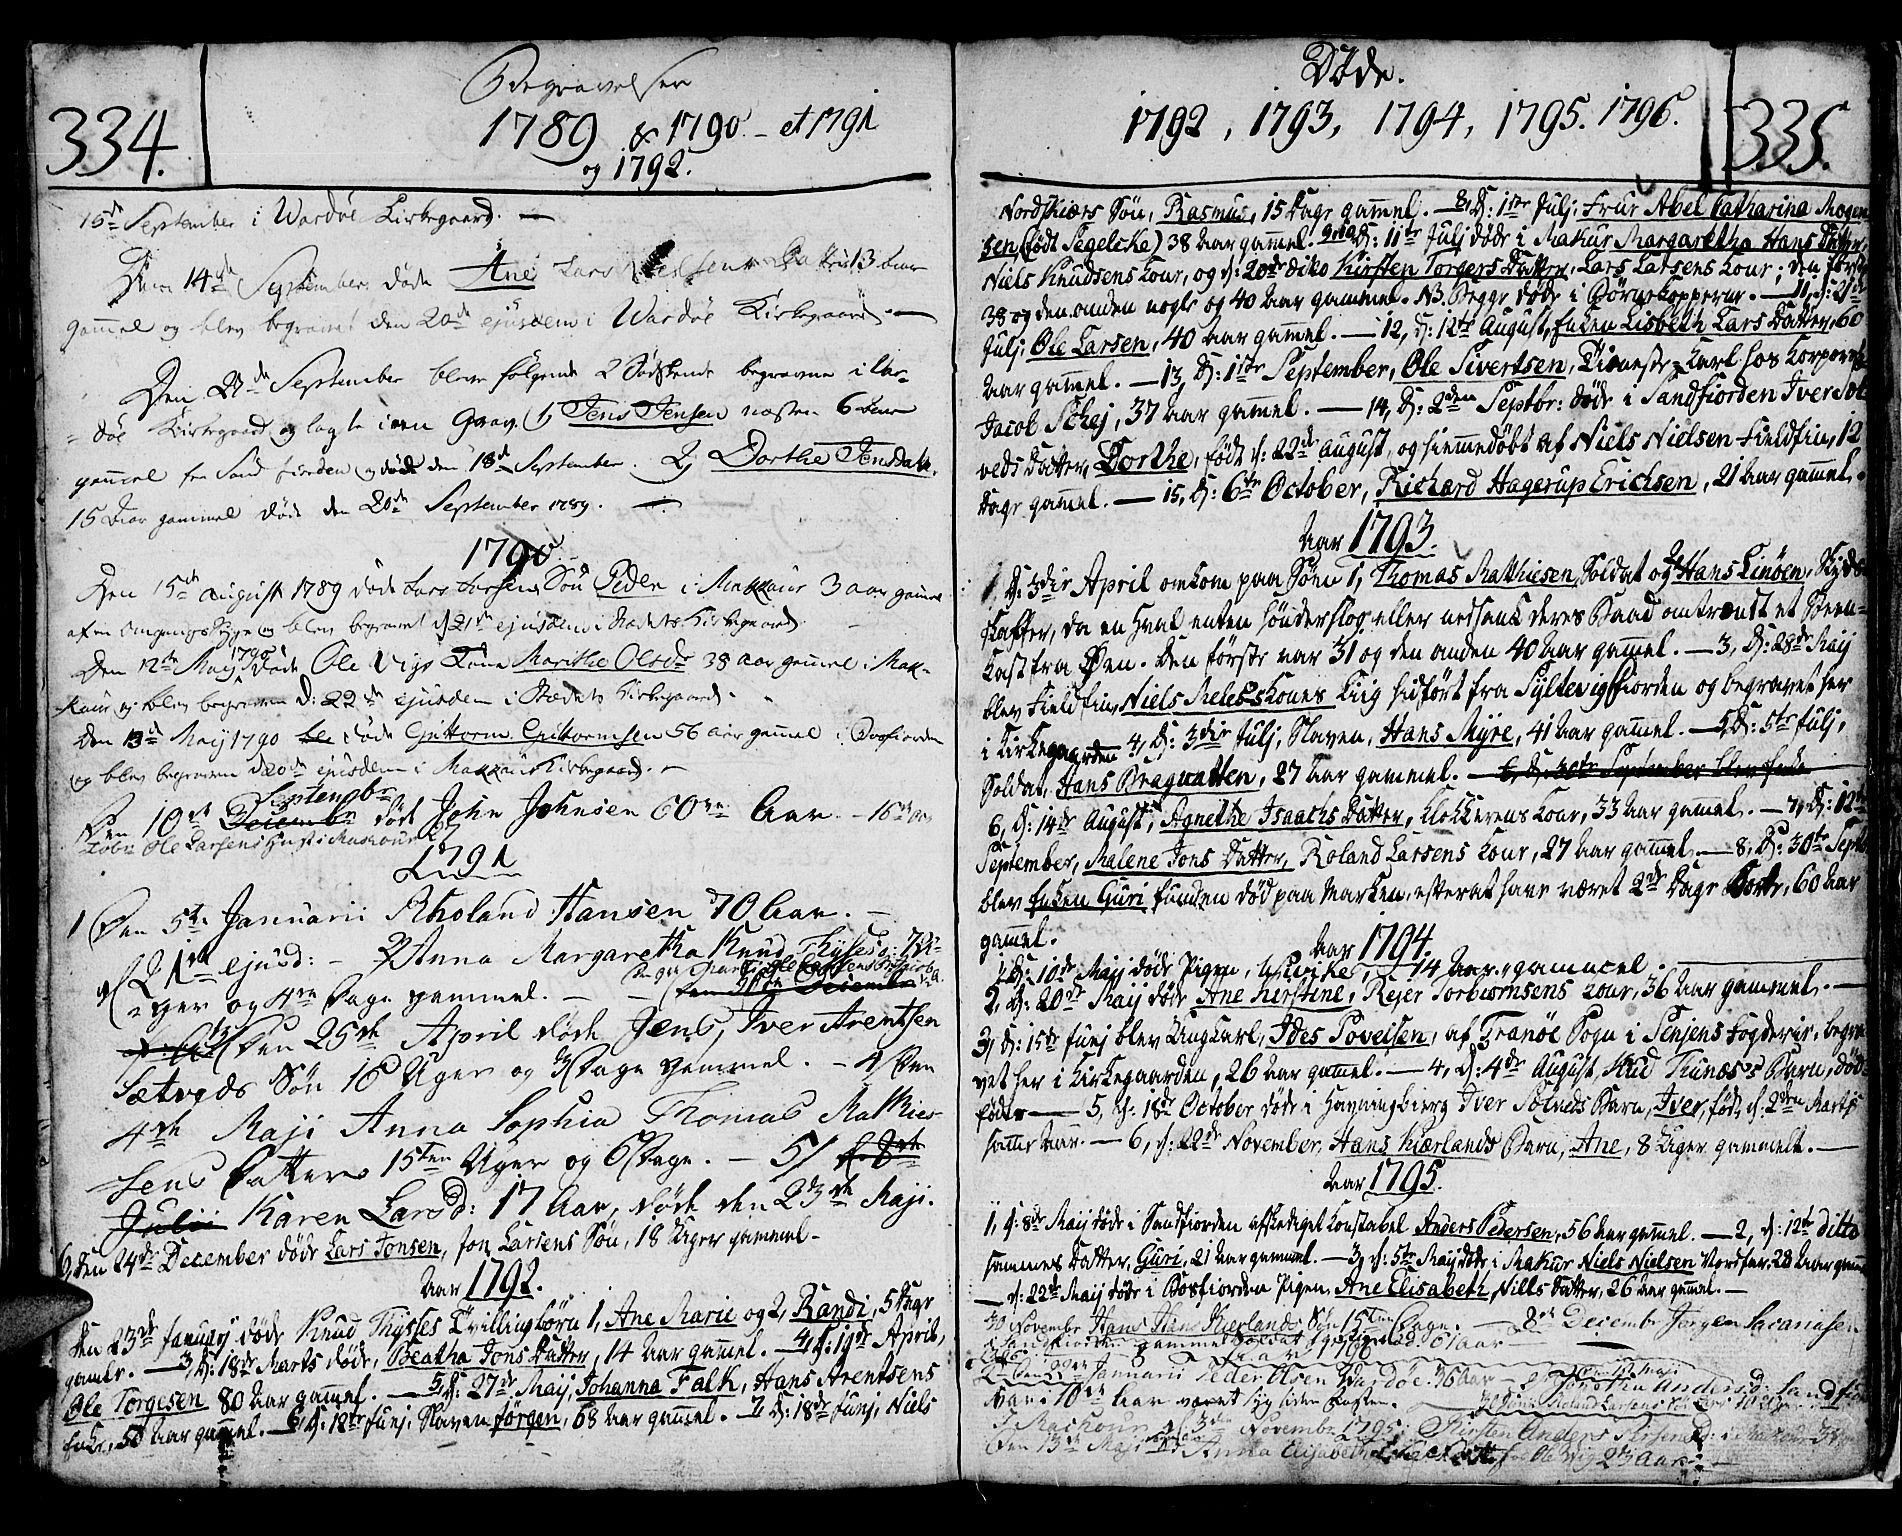 334.
Begravelser
1789 & 1790 - et 1791
og 1792.
15de September i Wardöe Kirkegaard. —
Den 14de September døde Ane Lars 13 Aar
gammel og blev begravet den 20de ejusdem i Wardöe Kirkegaard —
Den 27de September bleve følgende 2 Södskende begravne i War-
döe Kirkegaard og lagte i een Grav. 1, Jens Jensen næsten 6 Aar
gammel fra Sand fiorden og døde den 18de September. 2, Dorthe Jensdatter.
15 Aar gammel døde den 20de September 1789. —
1790
Den 15de August 1789 døde Lars Larsens Søn Peder i Makkaur 3 aar gamel
af en Omgangs Syge og blev begravet d 21de ejusdem i Stædets Kirkegaard.
Den 12te Maij 1790 døde Ole Vigs Kone Marithe Olsdr 38 aar gammel i Mak-
kaur og blev begraven d: 22de ejusdem i Stædets Kirkegaard.
Den 13de Maij 1790 døde Guttorm Guttormsen 56 aar gammel i Baasfiorden
og blev begraven d 20de ejusdem i Makkaur Kirkegaard. —
Den 10de Decembr Septembr død John Johnsen 60 Aar. —
Ole Larsens
1791
1 Den 5te Januarii Rholand Hansen 70 Aar. —
2 Den 21de ejusd: - Anna Margaretha Knud Thyses d: 7 U-
ger og 4re Dage gammel. —
3 Den 25de April døde Jens, Iver Arentsen
Sætveds Søn 16 Uger og 3 Dage gammel. — 4 Den
4de Maji Anna Sophia Thomas Mathie-
sens Datter 15ten Uger og 6 Dage. — 5/ d. 8de
Julii Karen Larsd: 17 Aar, døde den 23de Maji.
6, den 24de December døde Lars Jonsen, Jon Larsens Søn, 18 Uger gammel —
Aar 1792.
Den 23de Januarij døde Knud Thyses Tvillingbørn 1, Ane Marie og 2, Randi, 5 Dage
gamle. — 3, d: 18de Marts døde, Beatha Jons Datter, 14 Aar gammel. — 4, d: 19de April,
Ole Torgesen 80 Aar gammel. — 5, d: 27de Maij, Johanna Falk, Hans Arentsens
Enke, 50 Aar gammel. — 6, d: 12te Junj, Slaven Jørgen, 68 Aar gammel. — 7, d: 18de Junj, Niels
335.
Døde.
1792, 1793, 1794, 1795. 1796.
Nordskiærs Søn, Rasmus, 15 Dage gammel. — 8, d: 1ste Julj, Frue Abel Catharina Mogen-
sen, (født Segelcke) 38 Aar gammel. d: 11te Julj døde i Makur Margaretha Hans Datter,
Niels Knudsens Kone, og d: 20de dito Kirsten Torgers Datter, Lars Larsens Kone; den første
38 og den anden nogle og 40 Aar gammel. NB. Begge døde i Børnekopperne. — 11, d: 21de
Julj, Ole Larsen, 40 Aar gammel. — 12, d: 12te August, Enken Lisbeth Lars Datter, 60
Aar gammel. — 13, d: 1ste September, Ole Sivertsen, Tieneste Karl hos Korporal
Jacob Schej, 37 Aar gammel. — 14, d: 2den Septbr: døde i Sandfiorden Iver Sæt-
veds Datter, Dorthe, født d: 22de August, og hiemmedøbt af Niels Nielsen Fieldfin, 12
Dage gammel. — 15, d: 6te October, Richard Hagerup Erichsen, 21 Aar gammel.
Aar 1793.
d: 3die April omkom paa Søen 1, Thomas Mathiesen, Soldat og 2, Hans Linöen, Skyds-
skaffer, da en Hval enten sønderslog eller nedsænk deres Baad omtrendt et Steen-
kast fra Øen. Den første var 31 og den anden 40 Aar gammel. — 3, d: 28de Maij
blev Fieldfin, Niels Melebs Kones Liig hidført fra Syltevigfiorden og begravet her
i Kirkegaarden 4, d: 3die Julj, Slaven, Hans Myre, 41 Aar gammel. — 5, d: 5te Julj,
Soldat, Hans Bragvatten, 27 Aar gammel. — 6, d: 30te September blev Enke
6, d: 14de August, Agnethe Isaachs Datter, Klokkerens Kone, 33 Aar gammel. — 7, d: 12te
September, Malene Jons Datter, Roland Larsens Kone, 27 Aar gammel. — 8, d: 30te Septbr
blev Enken Guri funden død paa Marken, efter at have været 2de Dage borte, 60 Aar
gammel.
Aar 1794.
1, d: 10de Maij døde Pigen, Ulriche, 14 Aar gammel
2, d: 20de Maij døde Ane Kirstine, Rejer Torbiörnsens Kone, 56 Aar gammel. —
3, d: 15de Junj blev Ungkarl, Ides Poveisen, af Tranöe Sogn i Senjens Fogderie, begra-
vet her i Kirkegaarden, 26 Aar gammel. — 4, d: 4de August, Knud Tunæs's Barn, død-
født — 5, d: 18de October døde i Havningbierg Iver Sætveds Barn, Iver, født d: 2den Martj
samme Aar. — 6, d: 22de November, Hans Kierlands Barn, Ane, 8 Uger gammelt. —
Aar 1795.
1, d: 8de Maij døde i Sandfiorden afskediget Konstabel Anders Pedersen, 56 Aar gammel. — 2, d: 12te ditto
sammes Datter, Guri, 21 Aar gammel. — 3, d: 5te Maij døde i Makur Niels Nielsen Nordfar, 28 Aar gammel
— d: 22de Maij døde i Bosfiorden Pigen, Ane Elisabeth, Nills Datter, 26 Aar gammel. —
30 Novembr Hans Hans Kierlands Søn 15ten Dage. — 8de Decembr Jørgen Sacariasen
i Sandfiorden, gammel Soldat 61 Aar —
Januarii Peder Olsen Wardöe. 36 Aar —
var i 10de Aar været syg
i Makkour Novembr 1795: Kirsten Anders
Den 13de Maji Anna Elisabeth